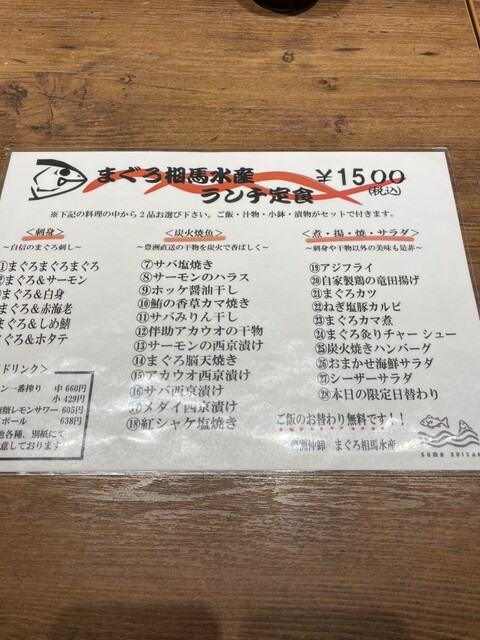 まぐろ相馬水産
ランチ定食
¥1500
(税込)
※下記の料理の中から2品お選び下さい。ご飯・汁物・小鉢・漬物がセットで付きます。
<刺身>
～自信のまぐろ刺し～
①まぐろまぐろまぐろ
まぐろ＆サーモン
まぐろ＆白身
まぐろ＆赤海老
まぐろ＆しめ鯖
ぐろ＆ホタテ
ドリンク
ン一番搾り 中 660円
小 429円
レモンサワー 605円
ボール 638円
他各種、別紙にて
意しております
<炭火焼魚>
～豊洲直送の干物を炭火で香ばしく～
⑦サバ塩焼き
⑧サーモンのハラス
⑨ホッケ醤油干し
⑩鮪の香草カマ焼き
⑪サバみりん干し
⑫伴助アカウオの干物
⑬サーモンの西京漬け
⑭まぐろ脳天焼き
⑮アカウオ西京漬け
⑯サバ西京漬け
⑰メダイ西京漬け
⑱紅シャケ塩焼き
<煮・揚・焼・サラダ>
～刺身や干物以外の美味も是非～
⑲アジフライ
⑳自家製鶏の竜田揚げ
㉑まぐろカツ
㉒ねぎ塩豚カルビ
㉓まぐろカマ煮
㉔まぐろ炙りチャーシュー
㉕炭火焼きハンバーグ
㉖おまかせ海鮮サラダ
㉗シーザーサラダ
㉘本日の限定日替わり
ご飯のお替わり無料です！！
豊洲仲卸 まぐろ相馬水産
soma suisan